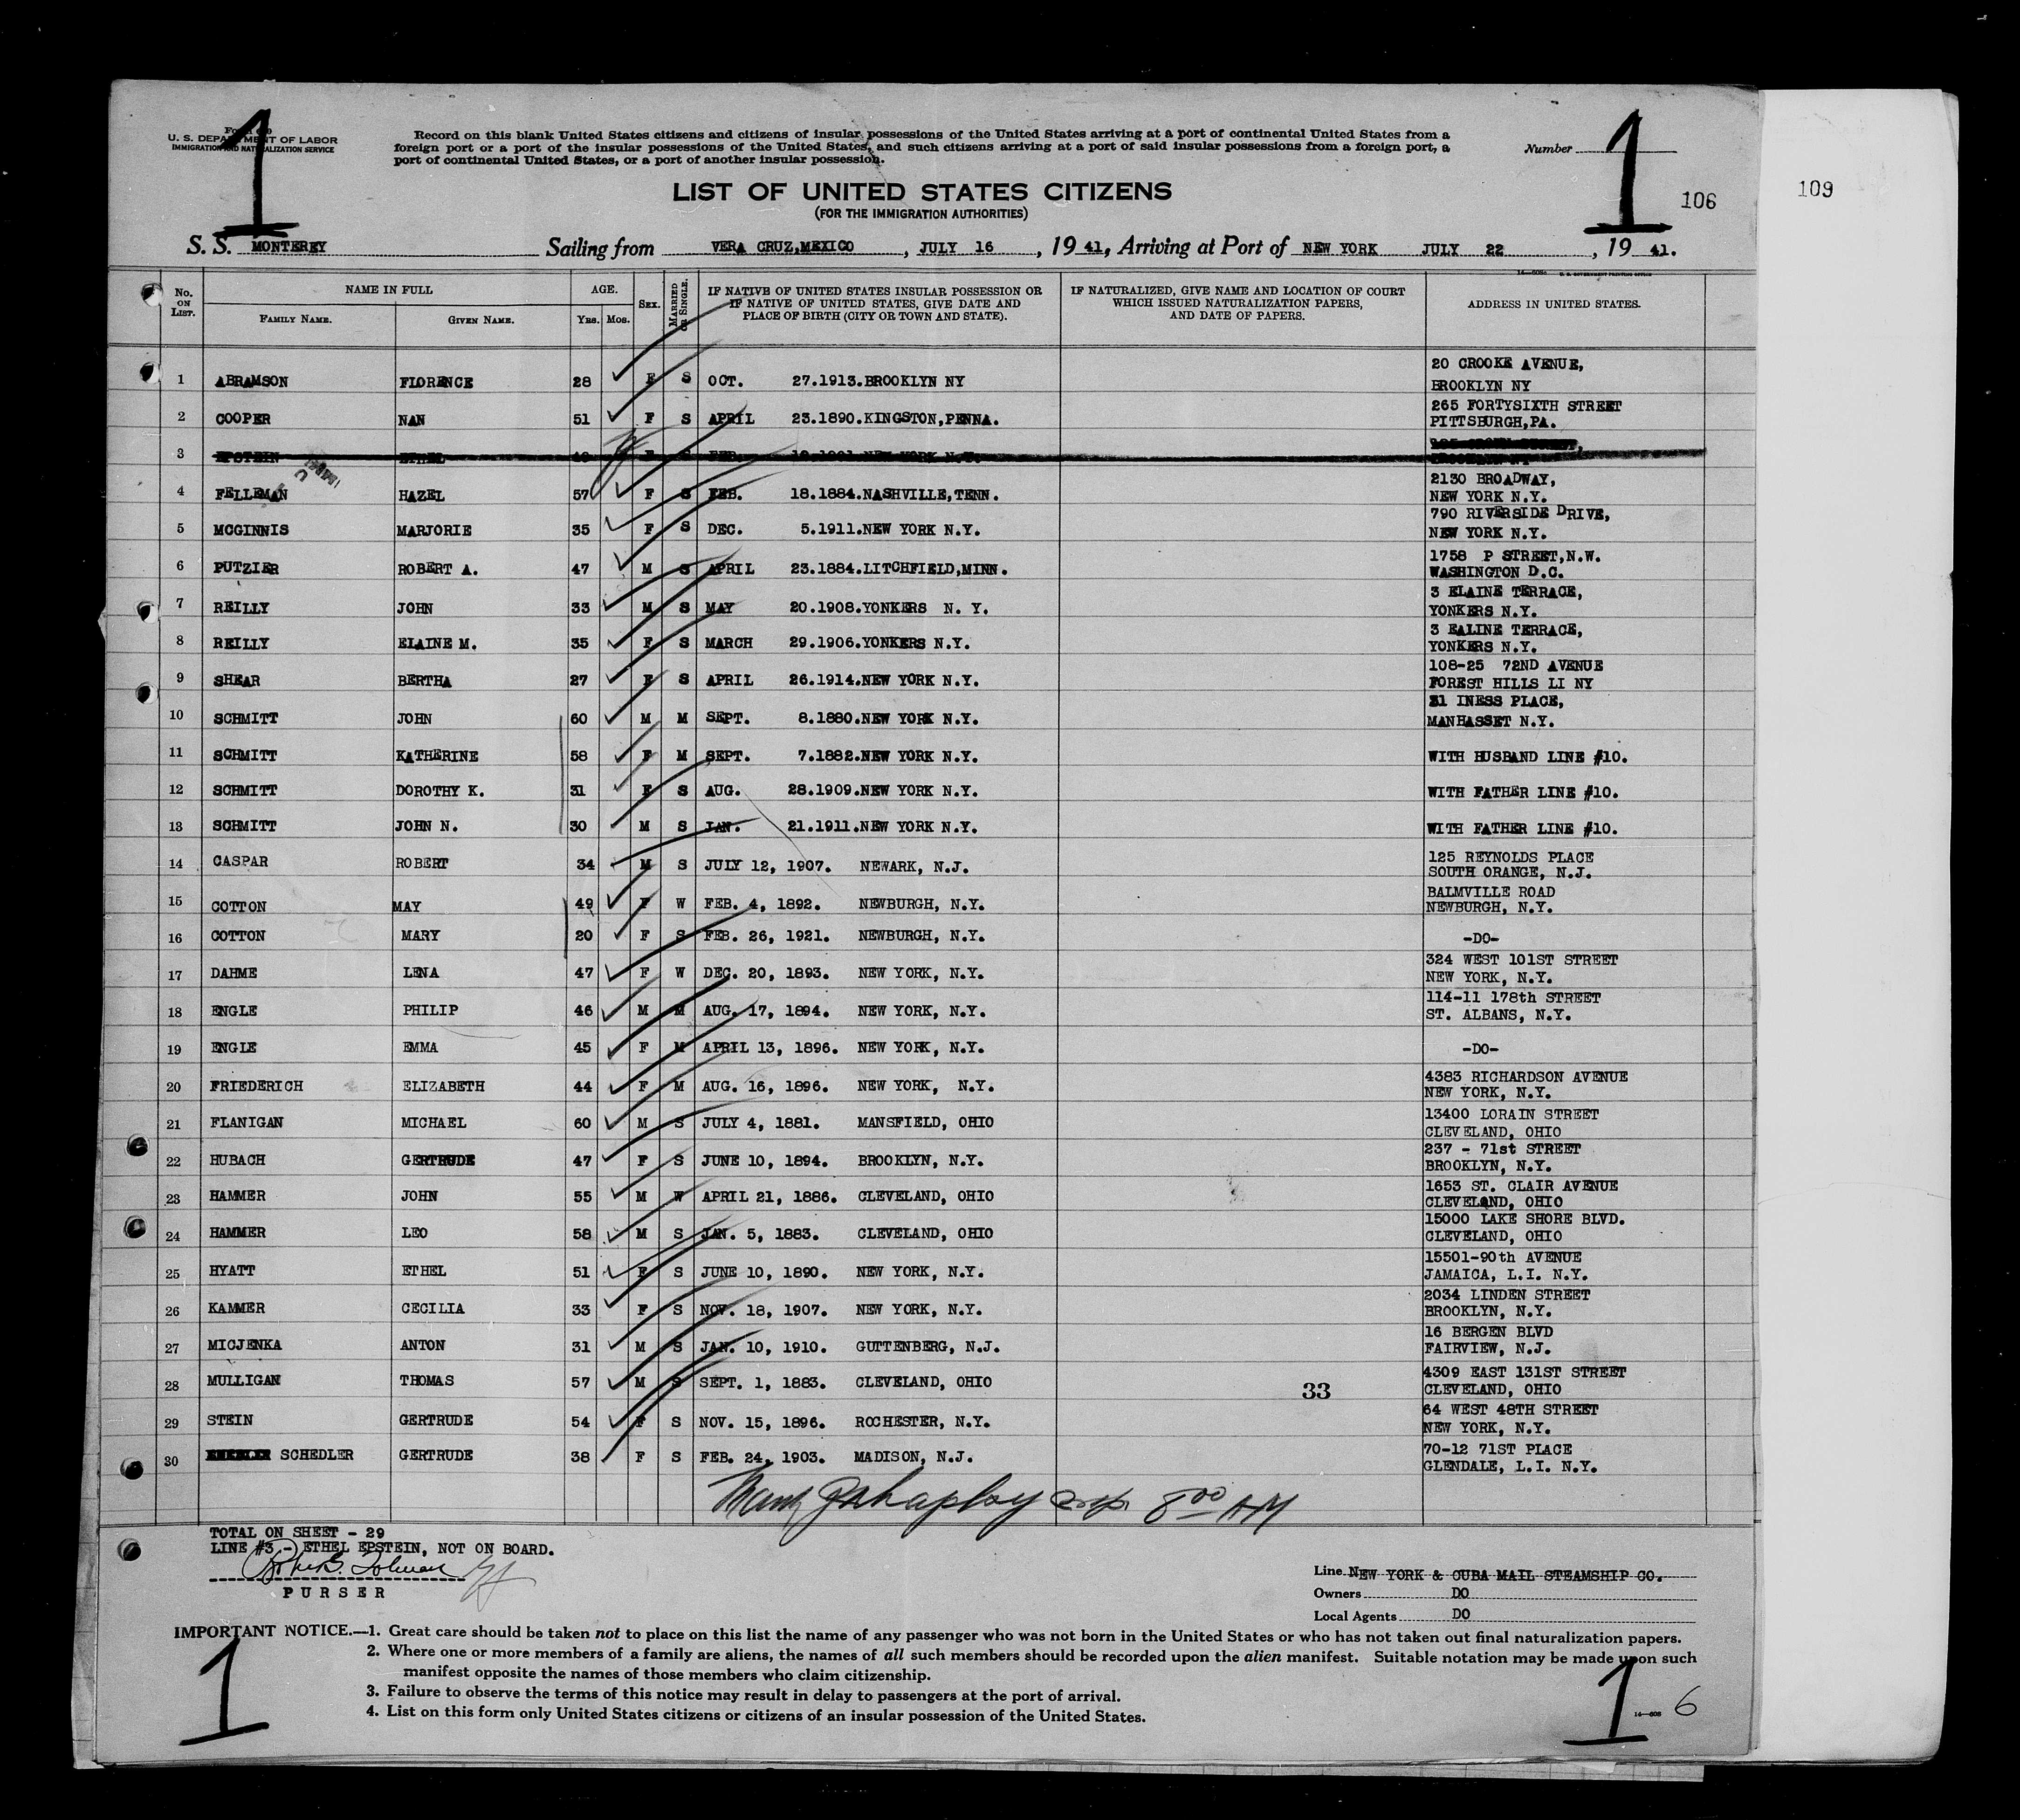 1 1
U. S. DEPARTMENT OF LABOR
IMMIGRATION AND NATURALIZATION SERVICE
Record on this blank United States citizens and citizens of insular possessions of the United States arriving at a port of continental United States from a
foreign port or a port of the insular possessions of the United States, and such citizens arriving at a port of said insular possessions from a foreign port, a
port of continental United States, or a port of another insular possession.
Number
106 109
LIST OF UNITED STATES CITIZENS
(FOR THE IMMIGRATION AUTHORITIES)
S. S. MONTEREY Sailing from VERA CRUZ,MEXICO, JULY 16, 19 41, Arriving at Port of NEW YORK JULY 22, 19 41.
No. ON LIST. NAME IN FULL FAMILY NAME. GIVEN NAME. AGE. Yrs. Mos. SEX. MARRIED OR SINGLE. IF NATIVE OF UNITED STATES INSULAR POSSESSION OR IF NATIVE OF UNITED STATES, GIVE DATE AND PLACE OF BIRTH (CITY OR TOWN AND STATE). IF NATURALIZED, GIVE NAME AND LOCATION OF COURT WHICH ISSUED NATURALIZATION PAPERS, AND DATE OF PAPERS. ADDRESS IN UNITED STATES.
1 ABRAMSON FLORENCE 28 F S OCT. 27.1913.BROOKLYN NY 20 CROOKE AVENUE,
BROOKLYN NY
2 COOPER NAN 51 F S APRIL 23.1890.KINGSTON,PENNA. 265 FORTYSIXTH STREET
PITTSBURGH,PA.
3 EPSTEIN ETHEL
4 FELLEMAN HAZEL 57 F S FEB. 18.1884.NASHVILLE,TENN. 2130 BROADWAY,
NEW YORK N.Y.
5 MCGINNIS MARJORIE 35 F S DEC. 5.1911.NEW YORK N.Y. 790 RIVERSIDE DRIVE,
NEW YORK N.Y.
6 PUTZIER ROBERT A. 47 M S APRIL 23.1884.LITCHFIELD,MINN. 1758 P STREET,N.W.
WASHINGTON D.C.
7 REILLY JOHN 33 M S MAY 20.1908.YONKERS N. Y. 3 ELAINE TERRACE,
YONKERS N.Y.
8 REILLY ELAINE M. 35 F S MARCH 29.1906.YONKERS N.Y. 3 EALINE TERRACE,
YONKERS N.Y.
9 SHEAR BERTHA 27 F S APRIL 26.1914.NEW YORK N.Y. 108-25 72ND AVENUE
FOREST HILLS LI NY
10 SCHMITT JOHN 60 M M SEPT. 8.1880.NEW YORK N.Y. INESS PLACE,
MANHASSET N.Y.
11 SCHMITT KATHERINE 58 F M SEPT. 7.1882.NEW YORK N.Y. WITH HUSBAND LINE #10.
12 SCHMITT DOROTHY K. 31 F S AUG. 28.1909.NEW YORK N.Y. WITH FATHER LINE #10.
13 SCHMITT JOHN N. 30 M S JAN. 21.1911.NEW YORK N.Y. WITH FATHER LINE #10.
14 CASPAR ROBERT 34 M S JULY 12, 1907. NEWARK, N.J. 125 REYNOLDS PLACE
SOUTH ORANGE, N.J.
15 COTTON MAY 49 F W FEB. 4, 1892. NEWBURGH, N.Y. BALMVILLE ROAD
NEWBURGH, N.Y.
16 COTTON MARY 20 F S FEB. 26, 1921. NEWBURGH, N.Y. -DO-
17 DAHME LENA 47 F W DEC. 20, 1893. NEW YORK, N.Y. 324 WEST 101ST STREET
NEW YORK, N.Y.
18 ENGLE PHILIP 46 M M AUG. 17, 1894. NEW YORK, N.Y. 114-11 178th STREET
ST. ALBANS, N.Y.
19 ENGLE EMMA 45 F M APRIL 13, 1896. NEW YORK, N.Y. -DO-
20 FRIEDERICH ELIZABETH 44 F M AUG. 16, 1896. NEW YORK, N.Y. 4383 RICHARDSON AVENUE
NEW YORK, N.Y.
21 FLANIGAN MICHAEL 60 M S JULY 4, 1881. MANSFIELD, OHIO 13400 LORAIN STREET
CLEVELAND, OHIO
22 HUBACH GERTRUDE 47 F S JUNE 10, 1894. BROOKLYN, N.Y. 237 - 71st STREET
BROOKLYN, N.Y.
23 HAMMER JOHN 55 M W APRIL 21, 1886. CLEVELAND, OHIO 1653 ST. CLAIR AVENUE
CLEVELAND, OHIO
24 HAMMER LEO 58 M S JAN. 5, 1883. CLEVELAND, OHIO 15000 LAKE SHORE BLVD.
CLEVELAND, OHIO
25 HYATT ETHEL 51 F S JUNE 10, 1890. NEW YORK, N.Y. 15501-90th AVENUE
JAMAICA, L.I. N.Y.
26 KAMMER CECILIA 33 F S NOV. 18, 1907. NEW YORK, N.Y. 2034 LINDEN STREET
BROOKLYN, N.Y.
27 MICJENKA ANTON 31 M S JAN. 10, 1910. GUTTENBERG, N.J. 16 BERGEN BLVD
FAIRVIEW, N.J.
28 MULLIGAN THOMAS 57 M S SEPT. 1, 1883. CLEVELAND, OHIO 33 4309 EAST 131ST STREET
CLEVELAND, OHIO
29 STEIN GERTRUDE 54 F S NOV. 15, 1896. ROCHESTER, N.Y. 64 WEST 48TH STREET
NEW YORK, N.Y.
30 SCHEDLER GERTRUDE 38 F S FEB. 24, 1903. MADISON, N.J. 70-12 71ST PLACE
GLENDALE, L.I. N.Y.
8 00 AM
TOTAL ON SHEET - 29
LINE #3 - ETHEL EPSTEIN, NOT ON BOARD.
PURSER
Line NEW YORK & CUBA MAIL STEAMSHIP CO.
Owners DO
Local Agents DO
IMPORTANT NOTICE.—1. Great care should be taken not to place on this list the name of any passenger who was not born in the United States or who has not taken out final naturalization papers.
2. Where one or more members of a family are aliens, the names of all such members should be recorded upon the alien manifest. Suitable notation may be made upon such
manifest opposite the names of those members who claim citizenship.
3. Failure to observe the terms of this notice may result in delay to passengers at the port of arrival.
4. List on this form only United States citizens or citizens of an insular possession of the United States.
1 1 6